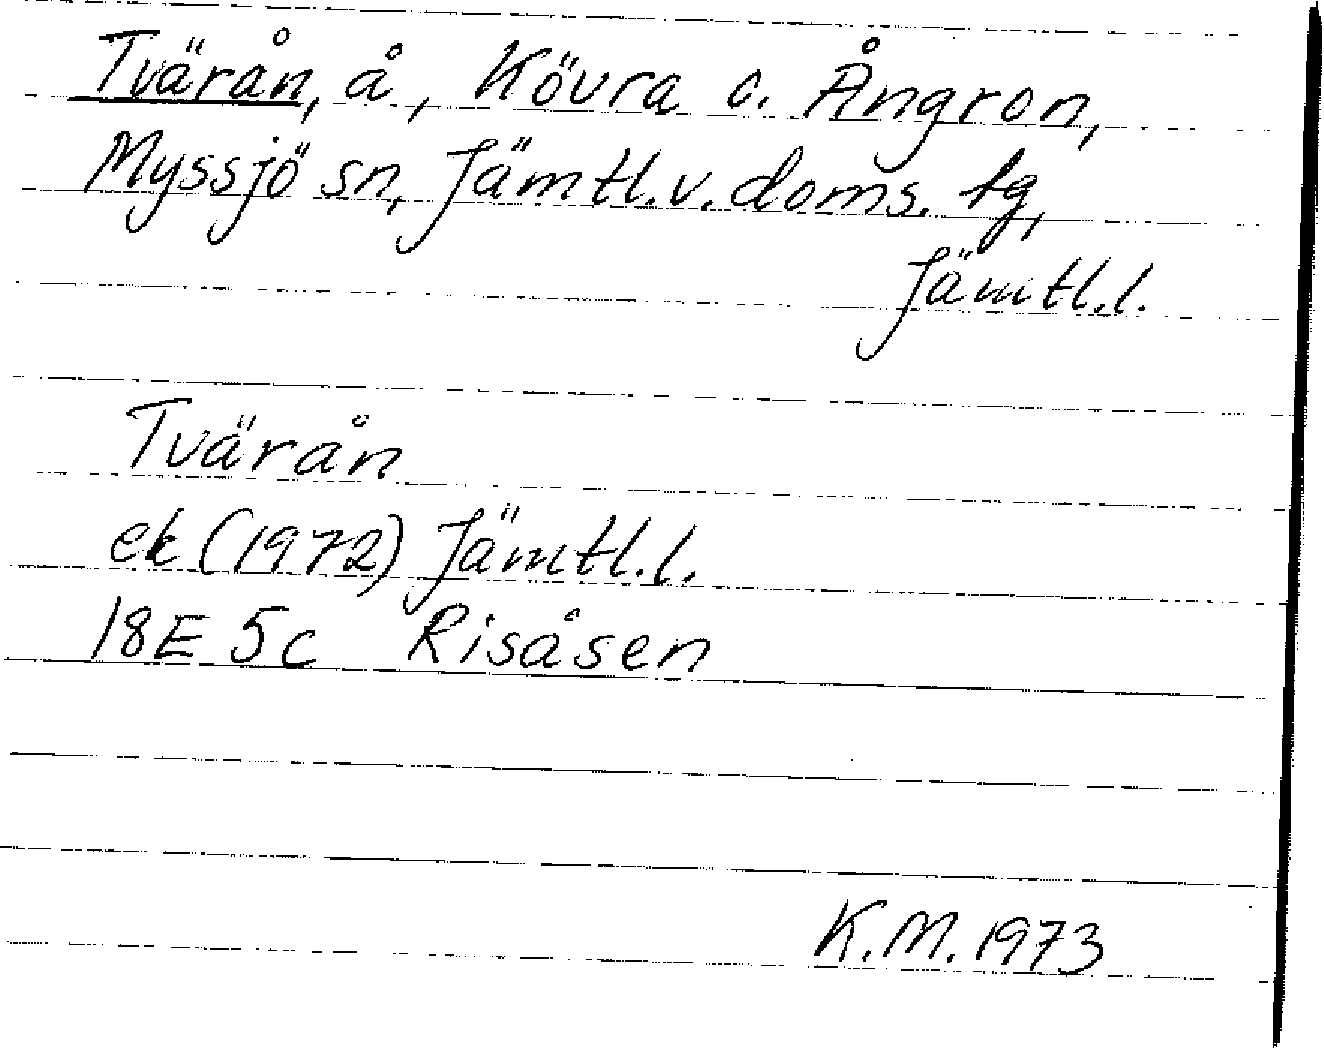 Tvärån, å, Kövra o. Ångron,
Myssjö sn, Jämtl.v.doms. tg,
Jämtl.l.
Tvärån
ek (1972) Jämtl.l.
18E 5c Risåsen
K.M. 1973